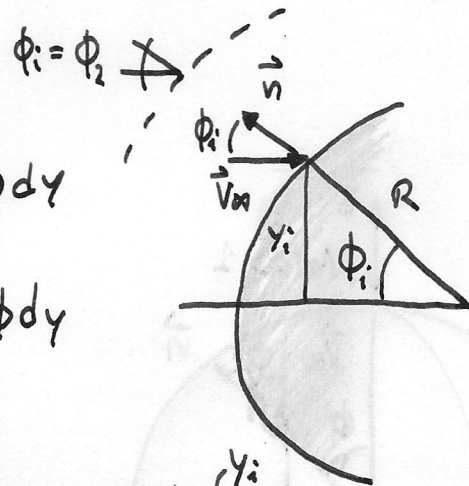 ϕi = ϕ2
n⃗
ϕi
V⃗∞
R
dy
yi
ϕi
ϕdy
yi